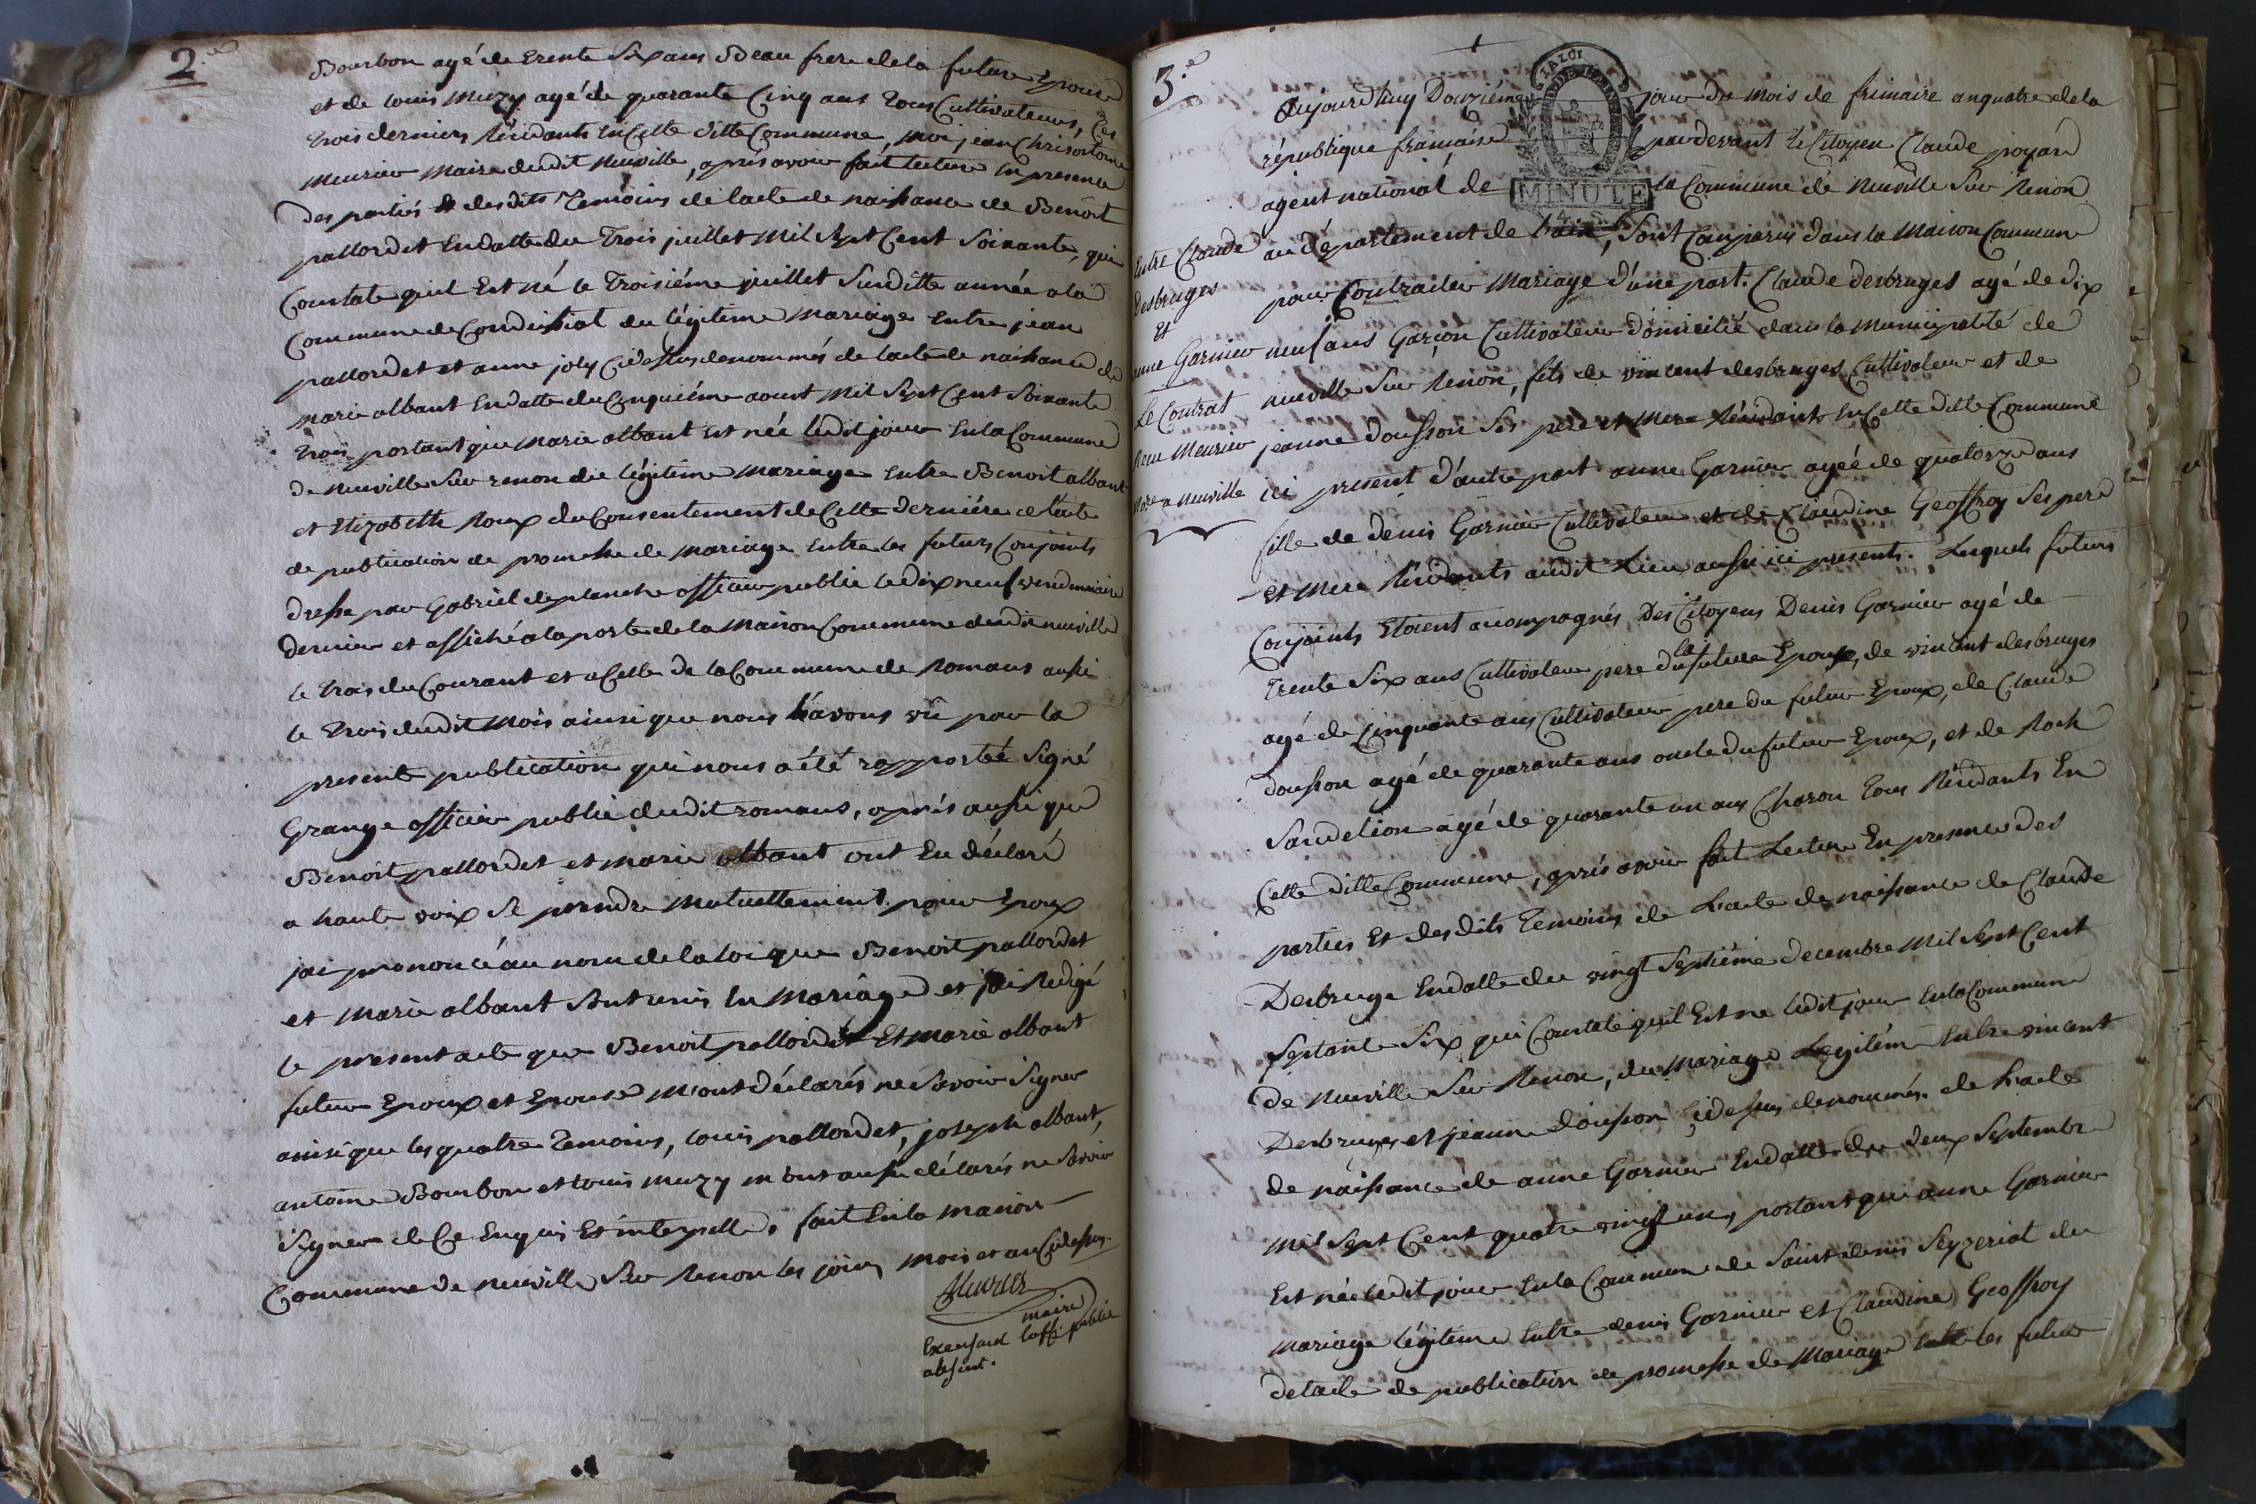 2.e
Bourbon agé de trente six ans Beau frere de la future Epouse
et de louis muzy agé de quarante Cinq ans tous Cultivateurs, Ces
trois derniers Résidants En Cette ditte Commune, moi jean Chrisostome
meurier maire dudit neuville, après avoir fait lecture En presence
des parties & desdits Temoins de lacte de naissance de Benoit
pallordet En datte du Trois juillet mil Sept Cent Soixante, qui
Constate quil Est né le Troisiéme juillet Susditte année a la
Commune de Condeissiat du légitime mariage Entre jean
pallordet et anne joly Cidessus denommés de lacte de naissance de
marie albant En datte du Cinquiéme aoust mil Sept Cent Soixante
trois portant que marie albant est née ledit jour En la Commune
de neuville Sur renon du légitime mariage Entre Benoit albant
et Elizabeth Roux du Consentement de Cette derniére de lacte
de publication de promesse de mariage Entre les futurs Conjoints
dressé par Gabriel deplanche officier public le dix neuf vendemiaire
dernier et affiché a la porte de la maison Commune dudit neuville
le trois du Courant et a Celle de la Commune de Romans aussi
le trois dudit mois ainsi que nous l'avons vû par la
presente publication qui nous a été rapportée Signé
Grange officier public dudit romans, après aussi que
Benoit pallordet et marie albant ont Eu déclaré
a haute voix Se prendre mutuellement pour Epoux
jai prononcé au nom de la loi que Benoit pallordet
et marie albant Sont unis En mariage et jai Redigé
le present acte que Benoit pallordet Et marie albant
futur Epoux et Epouse m'ont déclarés ne Savoir Signer
ainsi que les quatre Temoins, louis pallordet, joseph albant,
antoine Bourbon et louis muzy m'ont aussi déclarés ne Savoir
Signer de Ce Enquis Et interpellé. fait En la maison
Commune de neuville Sur Renon les jour, mois et an Cidessus.
Meurier
maire
Exerçant l'off. public
absent.
3.e
LA LOI
MINUTE
4. S.
Aujourdhuy Douziéme jour du mois de frimaire an quatre de la
république francaise par devant le Citoyen Claude poyard
agent national de la Commune de neuville Sur Renon
au département de lain, Sont Comparus dans la maison Commune
pour Contracter Mariage d'une part. Claude desbruges agé de dix
neuf ans Garçon Cultivateur domicilié dans la municipalité de
neuville Sur Renon, fils de vincent desbruges Cultivateur et de
jeanne dousson Ses pere et mere Résidants En Cette ditte Commune
ici present d'autre part anne Garnier agée de quatorze ans
fille de denis Garnier Cultivateur et de Claudine Geoffroy Ses pere
et mere Résidants audit Lieu aussi ici presents. Lesquels futurs
Conjoints Etoient acompagnés Des Citoyens Denis Garnier agé de
Trente Six ans Cultivateur pere de la future Epouse, de vincent desbruges
agé de Cinquante ans Cultivateur pere du futur Epoux, de Claude
dousson agé de quarante ans oncle du futur Epoux, et de Roch
Sandelion agé de quarante un ans Charon Tous Résidants En
Cette ditte Commune, après avoir fait Lecture En presence des
parties Et desdits Temoins de Lacte de naissance de Claude
Desbruge En datte du vingt Septiéme decembre mil Sept Cent
Septante Six qui Constate quil Est ne ledit jour En la Commune
de neuville Sur Renon, du mariage Legitime Entre vincent
Desbruges et jeanne dousson Cidessus denommés. de Lacte
de naissance de anne Garnier En datte du deux Septembre
mil Sept Cent quatre vingt un, portant que anne Garnier
Est née ledit jour En la Commune de Saint denis Seyzeriat du
mariage légitime Entre denis Garnier et Claudine Geoffroy
de lacte de publication de promesse de mariage Entre les futur
Entre Claude
desbruges
et
anne Garnier
Le Contrat
Recu Meurier
Nore a neuville